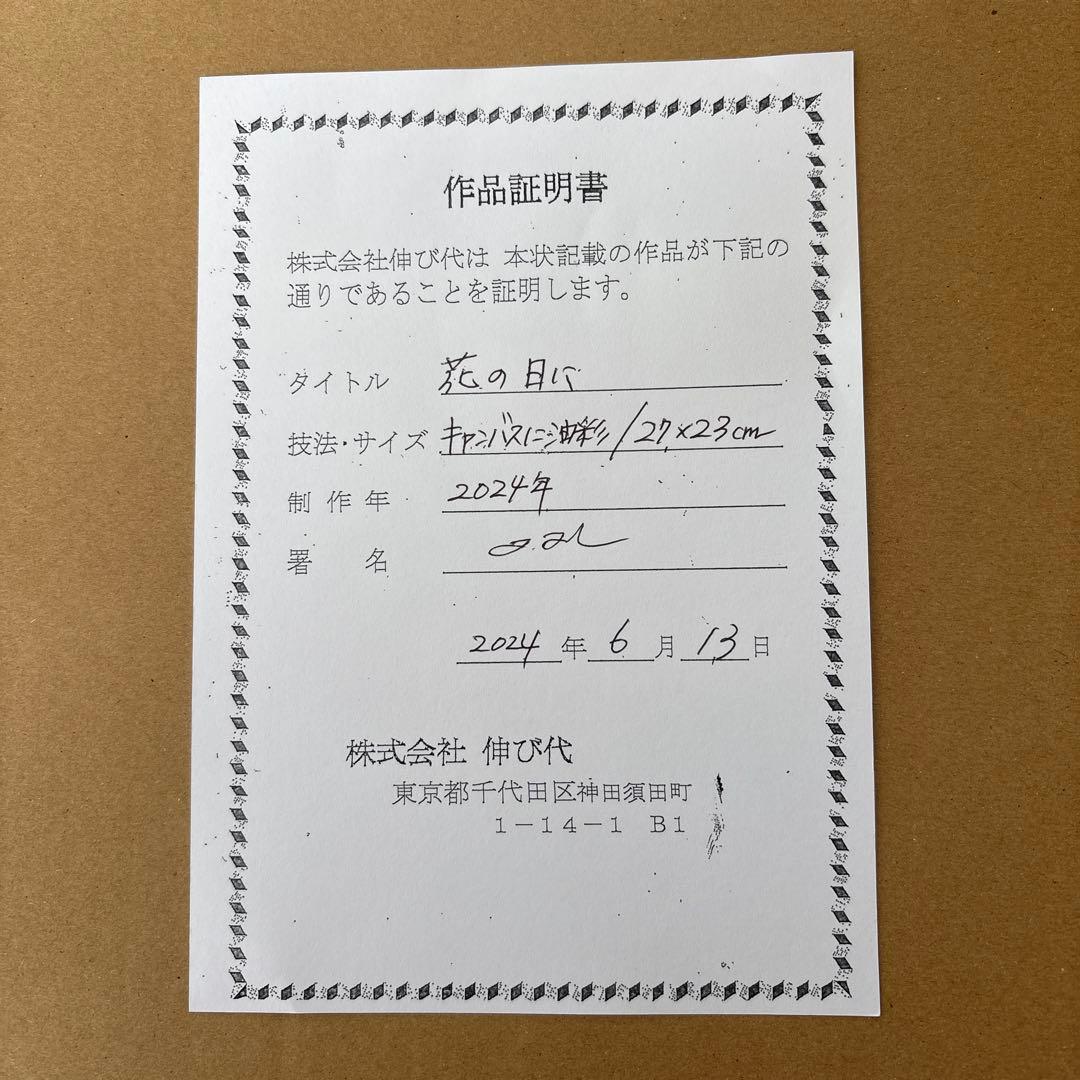 作品証明書
株式会社伸び代は 本状記載の作品が下記の
通りであることを証明します。
タイトル 花の日に
技法・サイズ キャンバスに油彩/27×23cm
制作年 2024年
署名
2024年6月13日
株式会社 伸び代
東京都千代田区神田須田町
1－14－1 B1